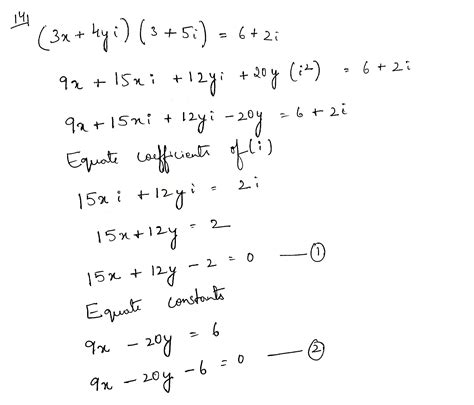 14) (3x + 4yi) (3 + 5i) = 6 + 2i
9x + 15xi + 12yi + 20y (i²) = 6 + 2i
9x + 15xi + 12yi - 20y = 6 + 2i
Equate coefficients of (i)
15xi + 12yi = 2i
15x + 12y = 2
15x + 12y - 2 = 0 —— ①
Equate constants
9x - 20y = 6
9x - 20y - 6 = 0 —— ②